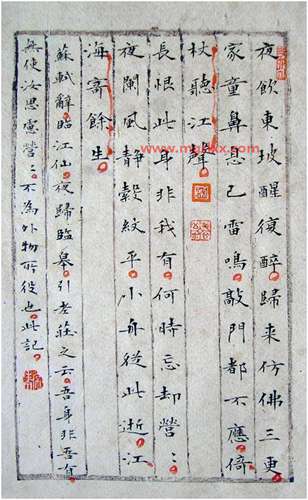 夜飲東坡醒復醉歸來仿佛三更
家童鼻息已雷鳴敲門都不應倚
杖聽江聲
長恨此身非我有何時忘却營〻
夜闌風靜縠紋平小舟從此逝江
海寄餘生
蘇軾辭臨江仙夜歸臨皋引老莊之云吾身非吾有
無使汝思慮營〻不為外物所役也此記